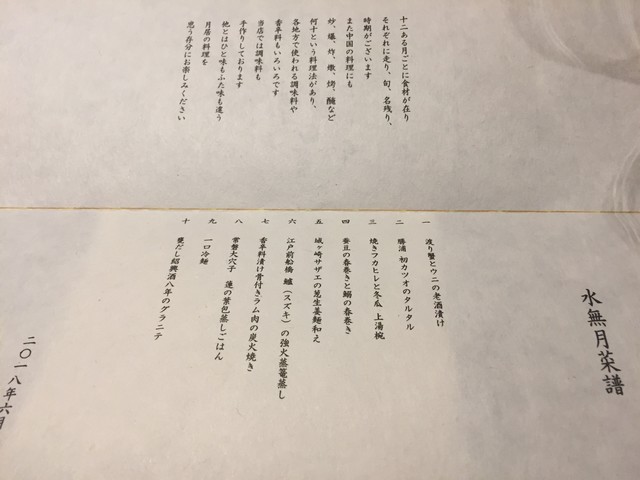 十二ある月ごとに食材が在り
それぞれに走り、旬、名残り、
時期がございます
また中国の料理にも
炒、爆、炸、燉、烤、醃など
何十という料理法があり、
各地方で使われる調味料や
香辛料もいろいろです
当店では調味料も
手作りしております
他とはひと味もふた味も違う
月居の料理を
思う存分にお楽しみください
水無月菜譜
一 渡り蟹とウニの老酒漬け
二 勝浦 初カツオのタルタル
三 焼きフカヒレと冬瓜 上湯椀
四 蚕豆の春巻きと鰯の春巻き
五 城ヶ崎サザエの葱生姜麺和え
六 江戸前船橋 鱸(スズキ)の強火蒸篭蒸し
七 香辛料漬け骨付きラム肉の炭火焼き
八 常磐大穴子 蓮の葉包蒸しごはん
九 一口冷麺
十 甕だし紹興酒八年のグラニテ
二〇一八年六月